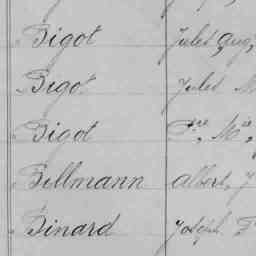 Bigot Jules, Aug,
Bigot Jules M
Bigot Fre, Mie,
Billmann Albert, J
Binard Joseph F